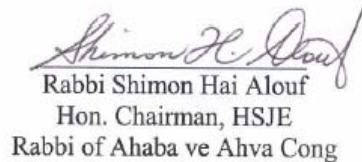 Shimon H. Alouf
Rabbi Shimon Hai Alouf
Hon. Chairman, HSJE
Rabbi of Ahaba ve Ahva Cong